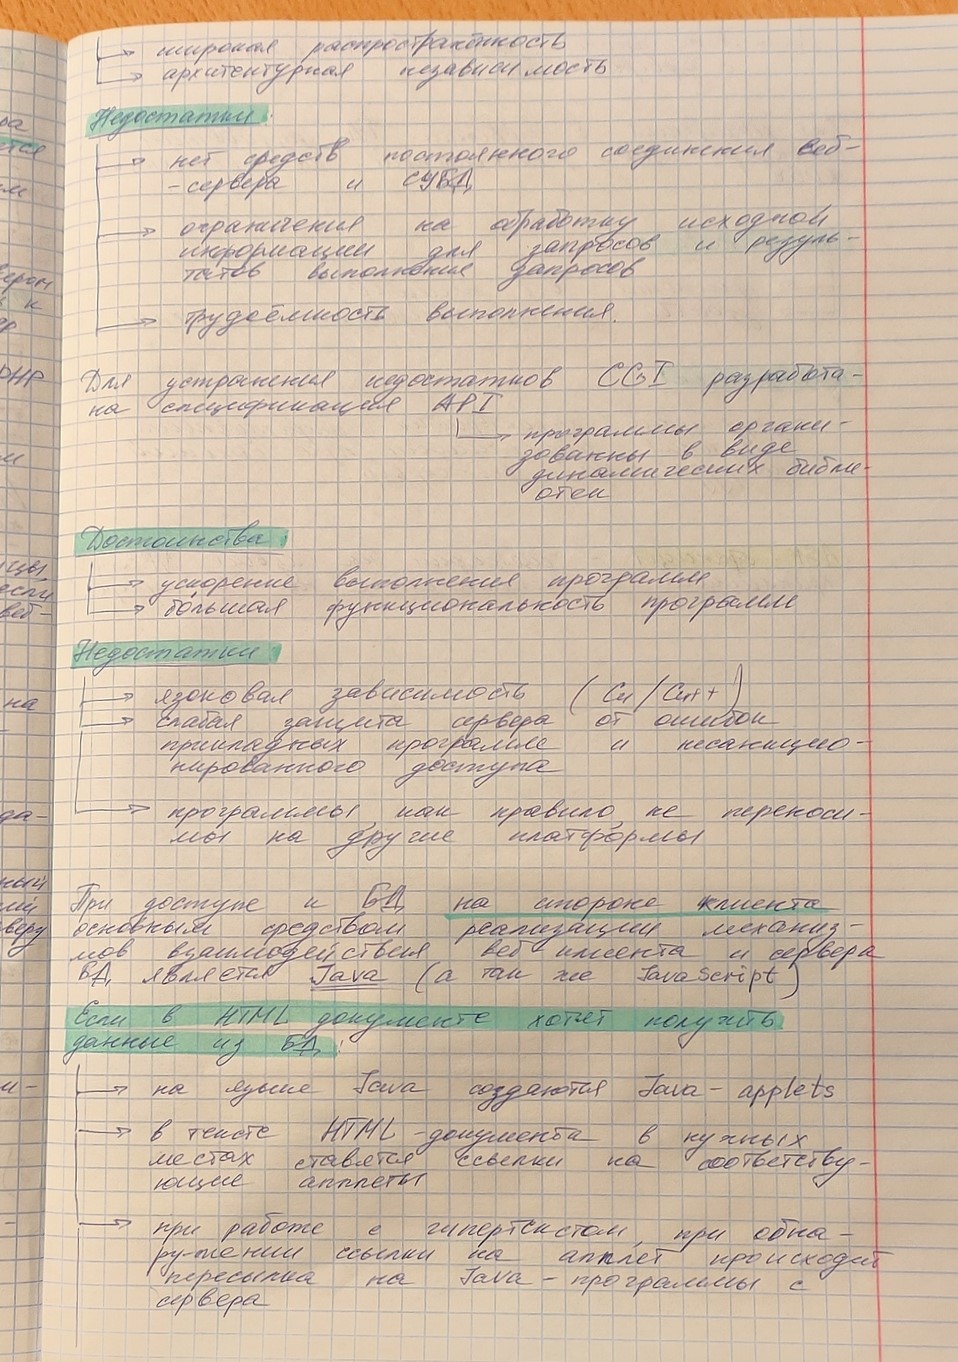 широкая распространённость
архитектурная независимость
Недостатки:
нет средств постоянного соединения веб-
-сервера и СУБД
ограничения на обработку исходной
информации для запросов и резуль-
татов выполнения запросов
трудоёмкость выполнения.
Для устранения недостатков CGI разработа-
на спецификация API
программы органи-
зованны в виде
динамических библи-
отек
Достоинства:
ускорение выполнения программ
большая функциональность программ
Недостатки:
языковая зависимость (Си/Си++)
слабая защита сервера от ошибок
прикладных программ и несанкцио-
нированного доступа
программы, как правило, не переноси-
мы на другие платформы
При доступе к БД на стороне клиента
основным средством реализации механиз-
мов взаимодействия веб клиента и сервера
БД является Java (а так же JavaScript)
Если в HTML документе хотят получить
данные из БД:
на языке Java создаются Java-applets
в тексте HTML-документа в нужных
местах ставятся ссылки на соответству-
ющие апплеты
при работе с гипертекстом, при обна-
ру-жении ссылки на апплет происходит
пересылка на Java-программы с
сервера